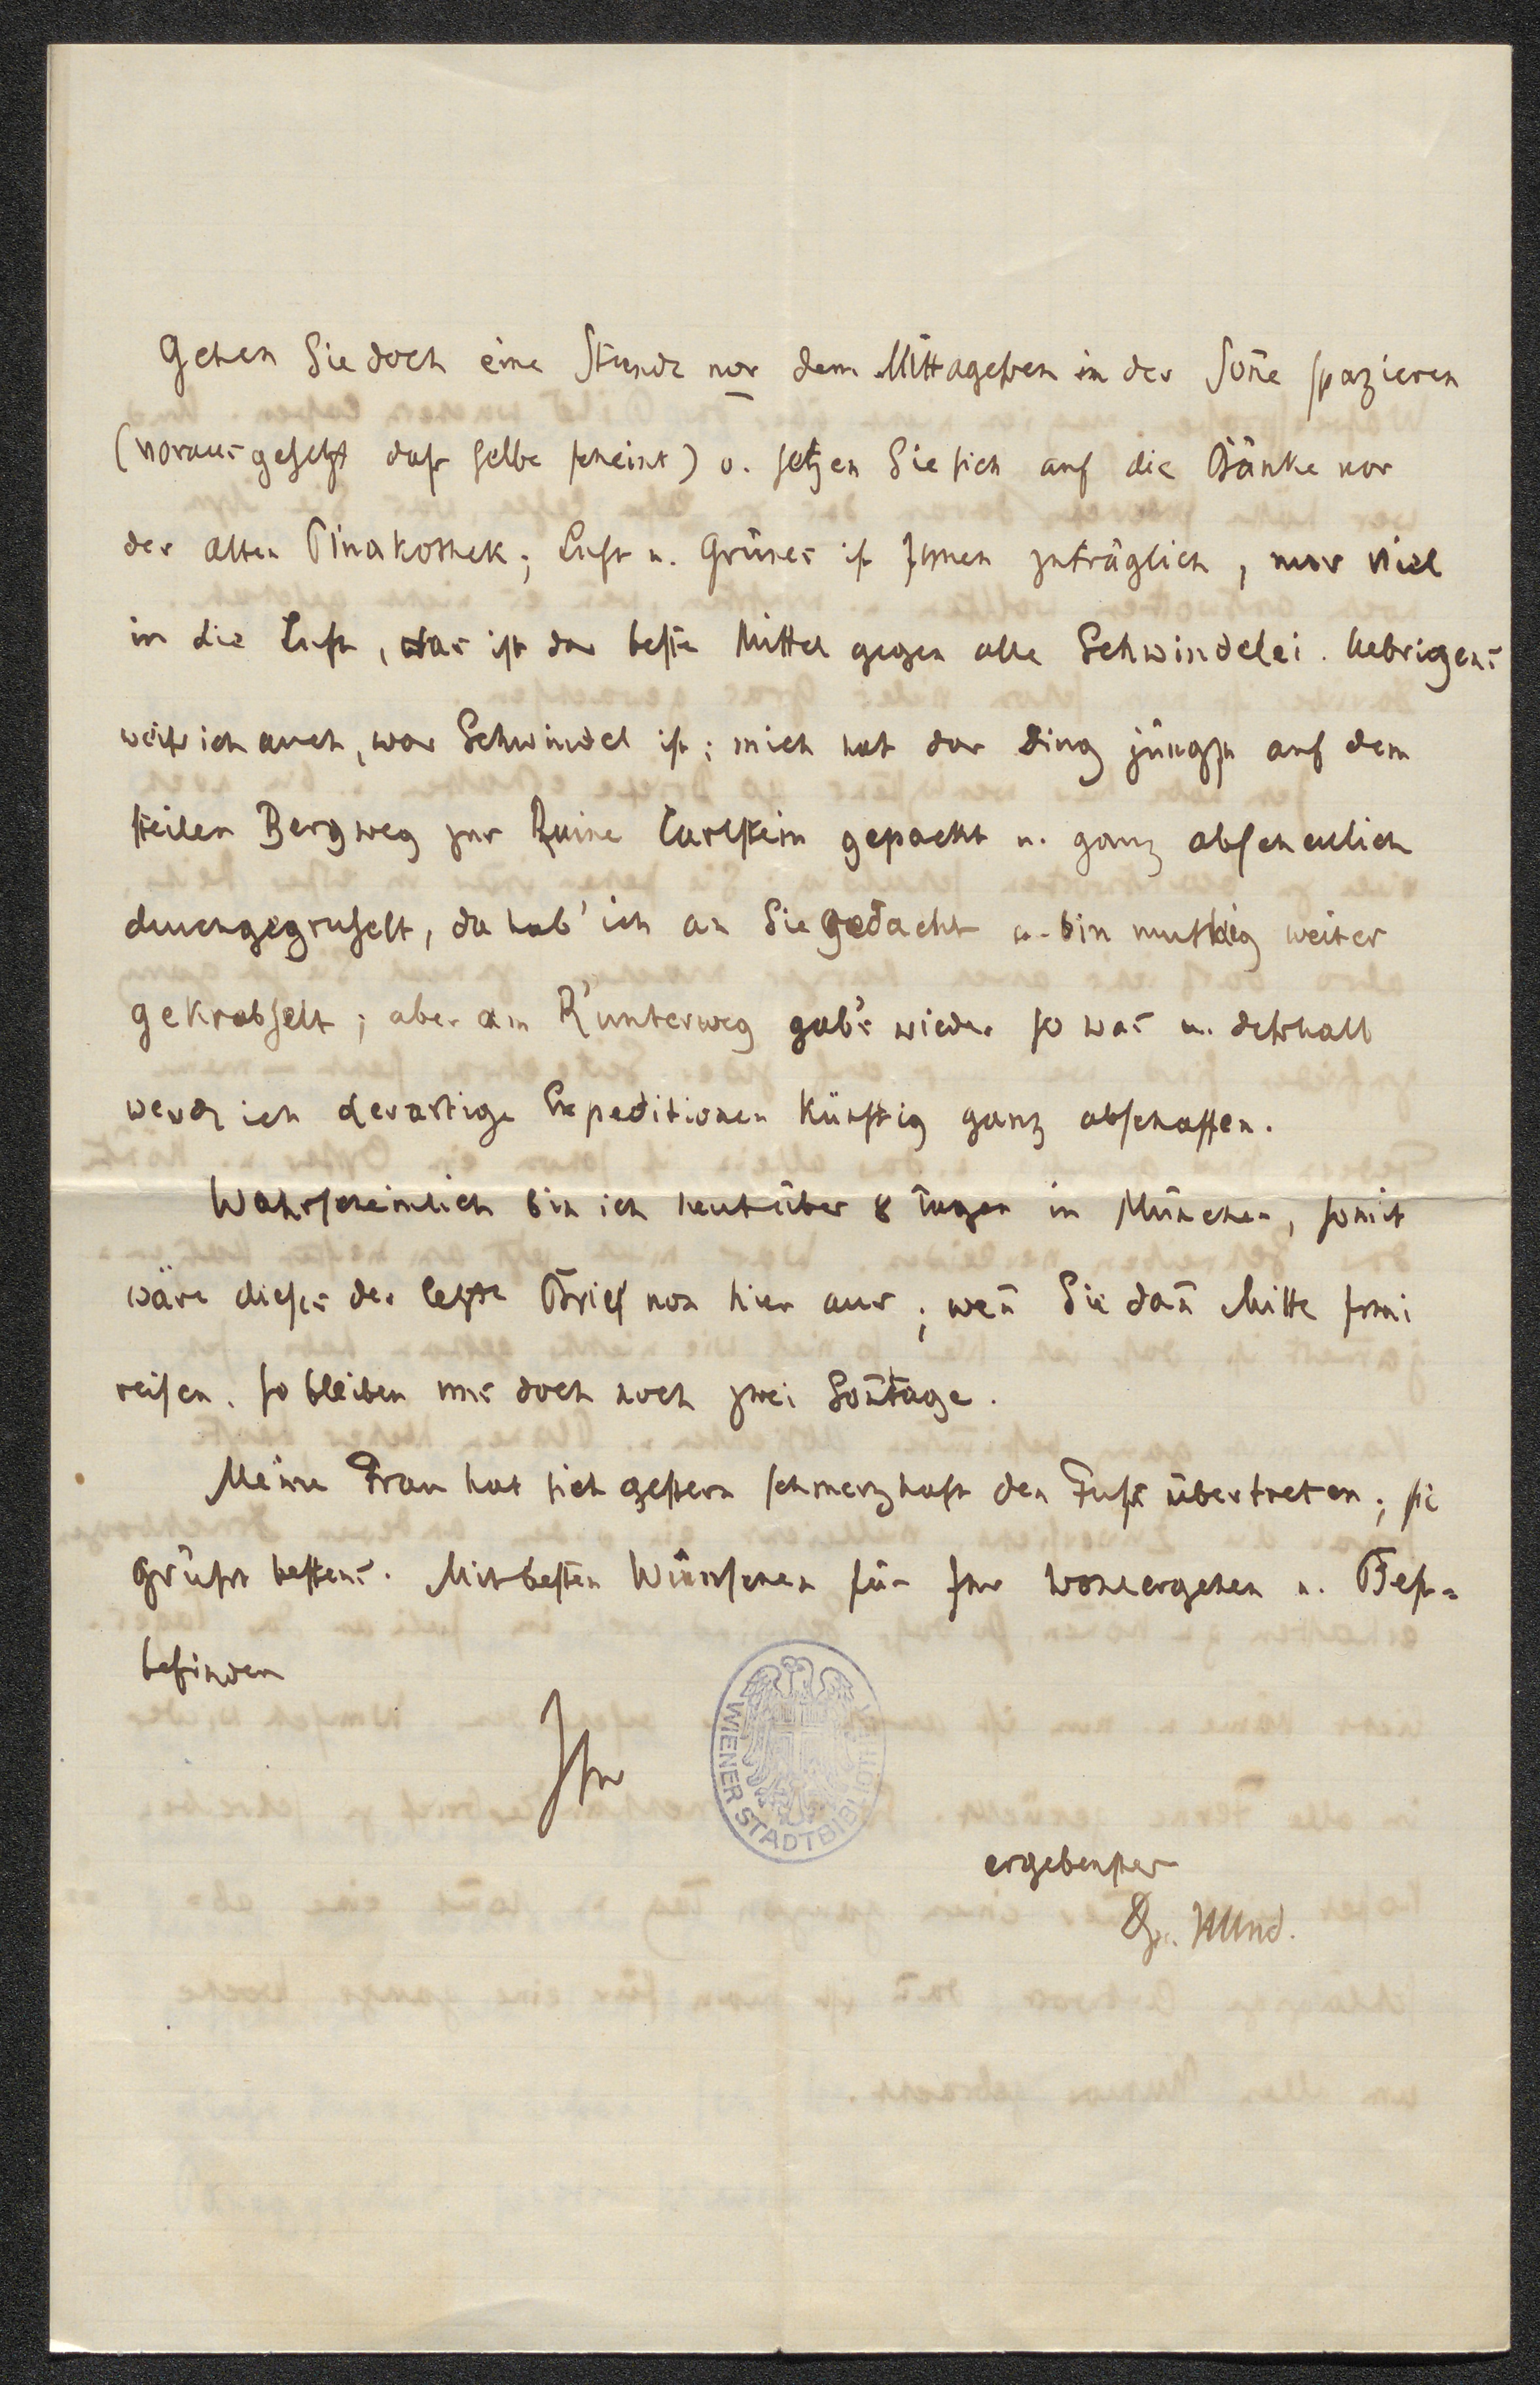 Gehen Sie doch eine Stunde vor dem Mittagessen in der Son̄e spazieren
(vorausgesetzt dass selbe scheint) u. setzen Sie sich auf die Bänke vor
der alten Pinakothek; Luft u. Grünes ist Ihnen zuträglich, nur viel
in die Luft, das ist das beste Mittel gegen alle Schwindelei. Uebrigens
weiss ich auch, was Schwindel ist; mich hat das Ding jüngst auf dem
steilen Bergweg zur Ruine Carlstein gepackt u. ganz abscheulich
durchgegruselt, da hab' ich an Sie gedacht u. bin muthig weiter
gekrabselt; aber am R'unterweg gab's wieder so was u. desshalb
werde ich derartige Expeditionen künftig ganz abschaffen.
Wahrscheinlich bin ich heut über 8 Tagen in München, somit
wäre dieses der letzte Brief von hier aus; wen̄ Sie dan̄ Mitte Juni
reisen, so bleiben uns doch noch zwei Son̄tage.
Meine Frau hat sich gestern schmerzhaft den Fuss übertreten; sie
grüsst bestens. Mit besten Wünschen für Ihr Wohlergehen u. Best-
befinden
Ihr
WIENER STADTBIBLIOTHEK
ergebenster